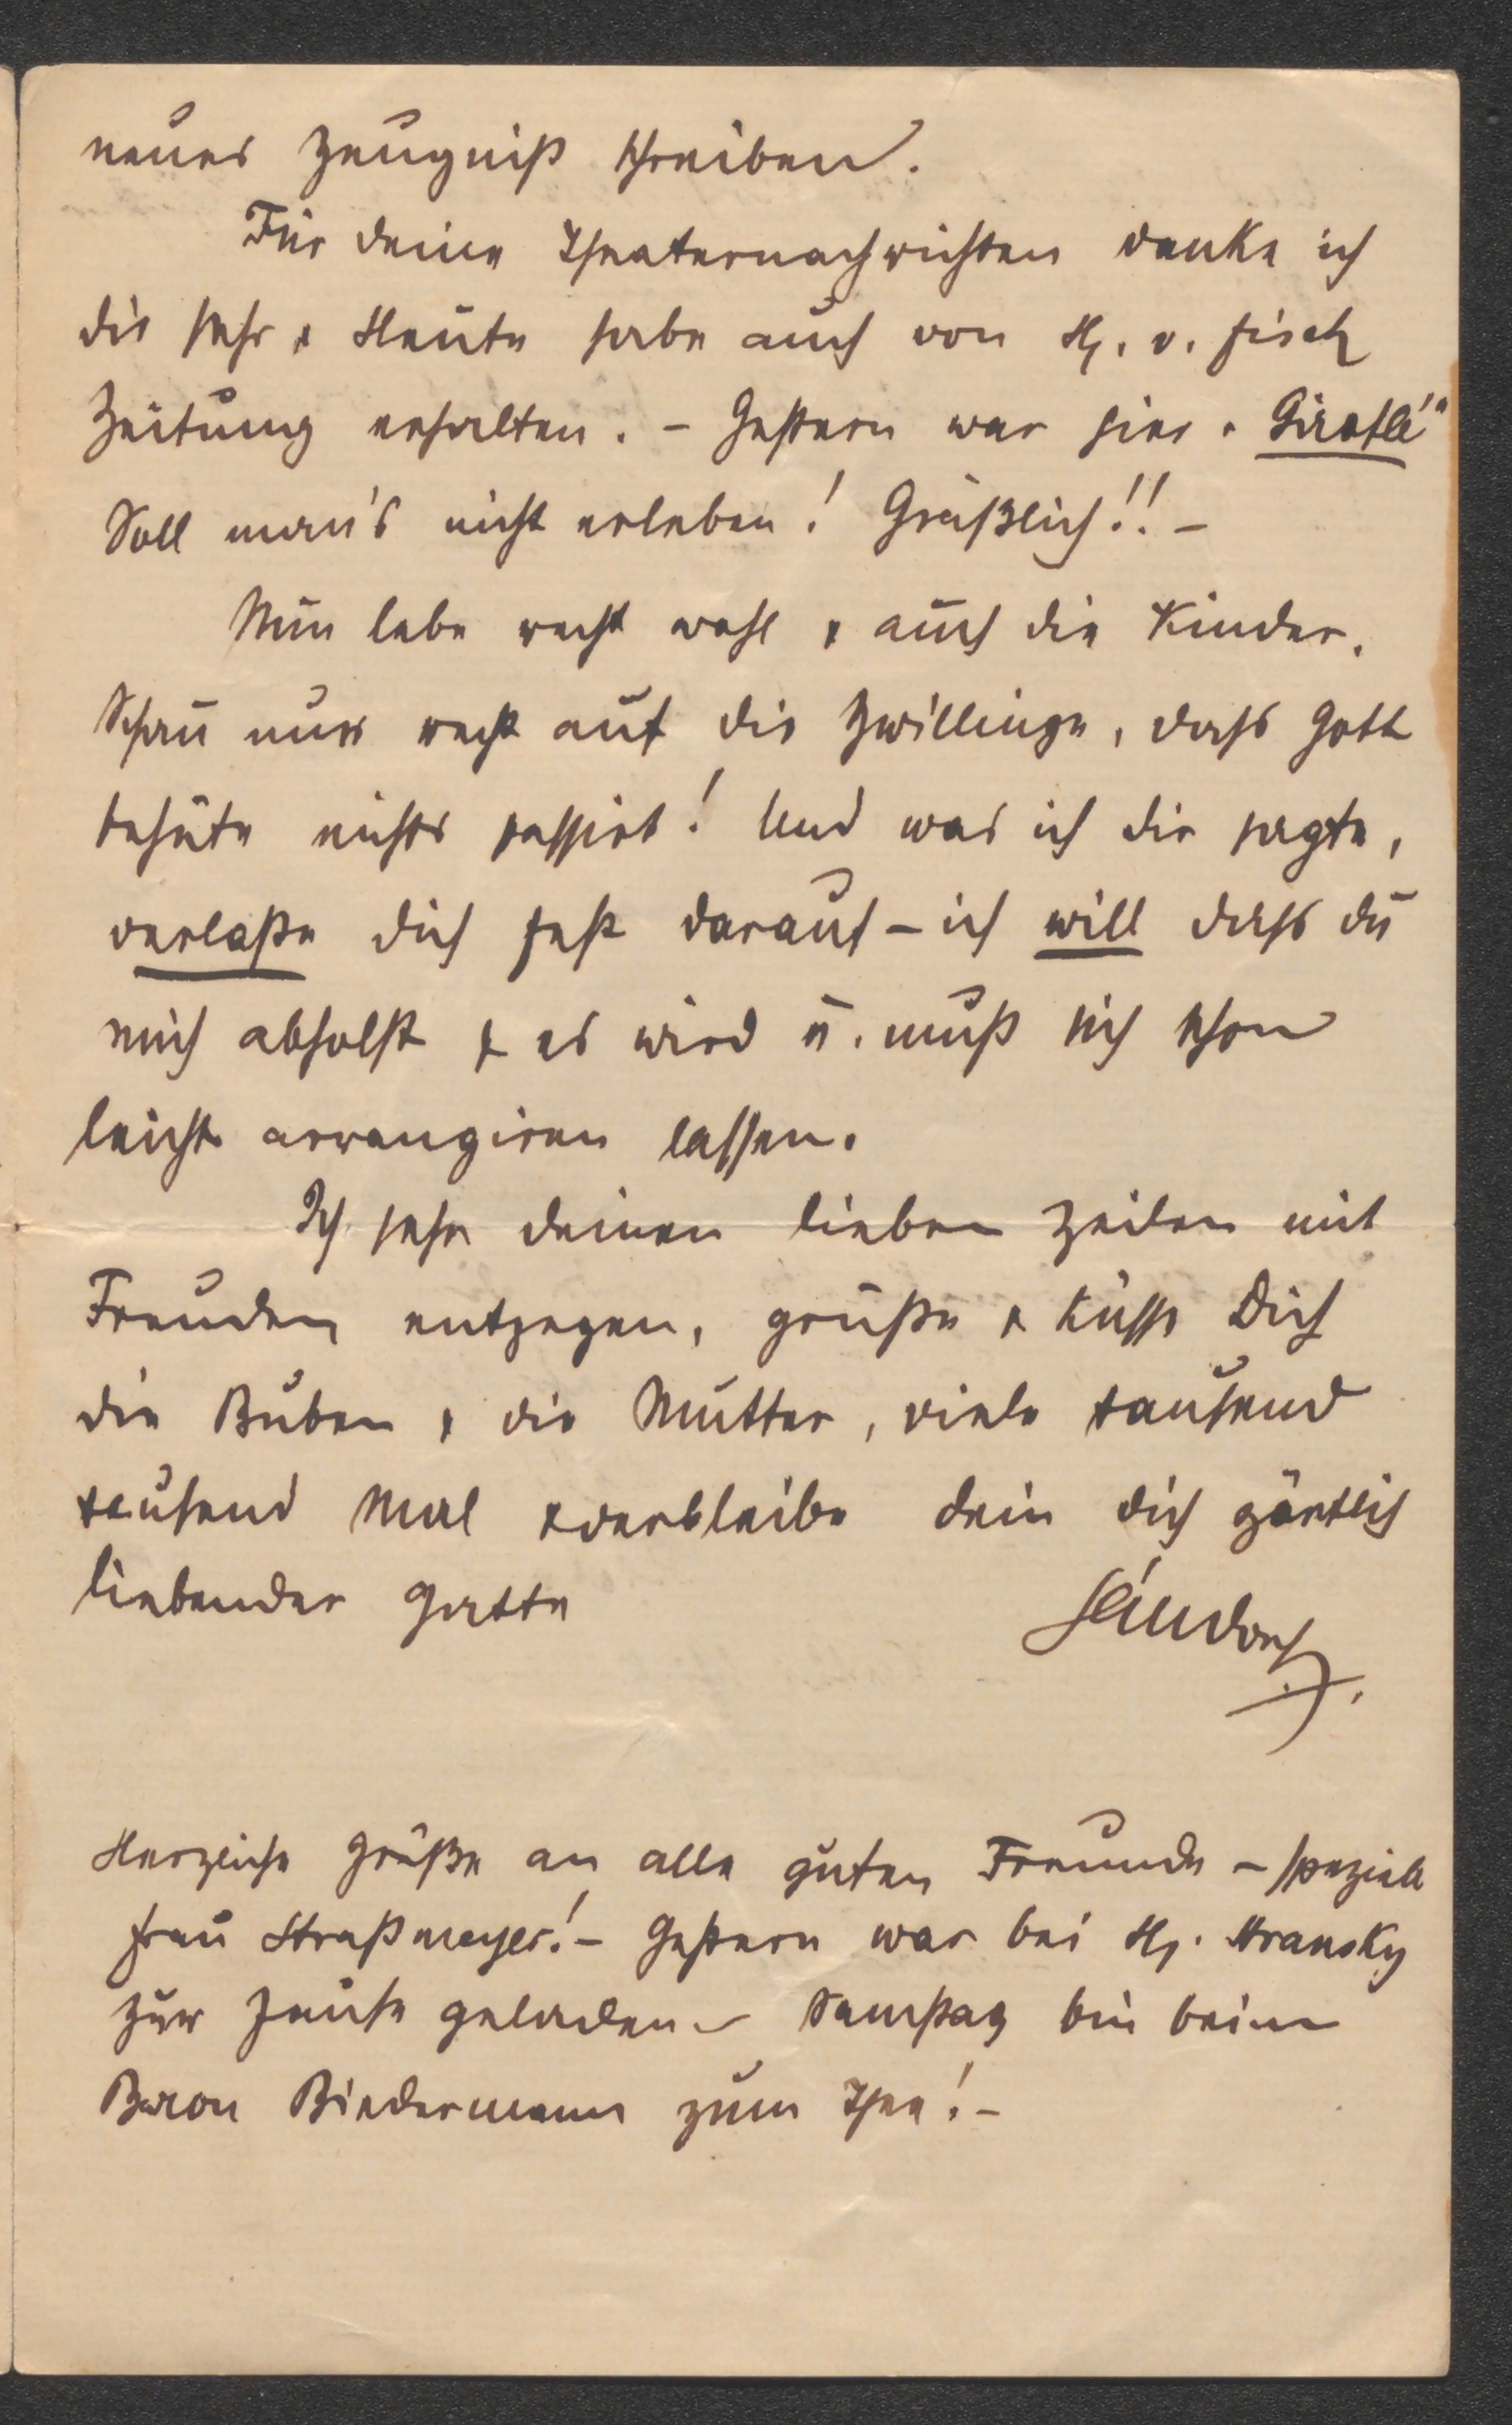 neues Zeugniß schreiben.
Für deine Theaternachrichten danke ich
dir sehr & Heute habe auch von H. v. Fisch
Zeitung erhalten. – Gestern war hier „Giroflé"
Soll man's nicht erleben! Gräßlich!! –
Nun lebe recht wohl & auch die Kinder.
Schau nur recht auf die Zwillinge, dass Gott
behüte nichts passirt! Und was ich dir sagte,
verlaße dich fest darauf – ich will dass du
mich abholst & es wird u. muß sich schon
leicht arrangiren lassen.
Ich sehe deinen lieben Zeilen mit
Freuden entgegen, grüße & küsse Dich
die Buben & die Mutter, viele tausend
tausend Mal & verbleibe dein dich zärtlich
liebender Gatte Sándor
Herzliche Grüße an alle guten Freunde – speziell
Frau Straßmeyer! – Gestern war bei H. Stransky
zur Jause geladen – Samstag bin beim
Baron Biedermann zum Thee! –